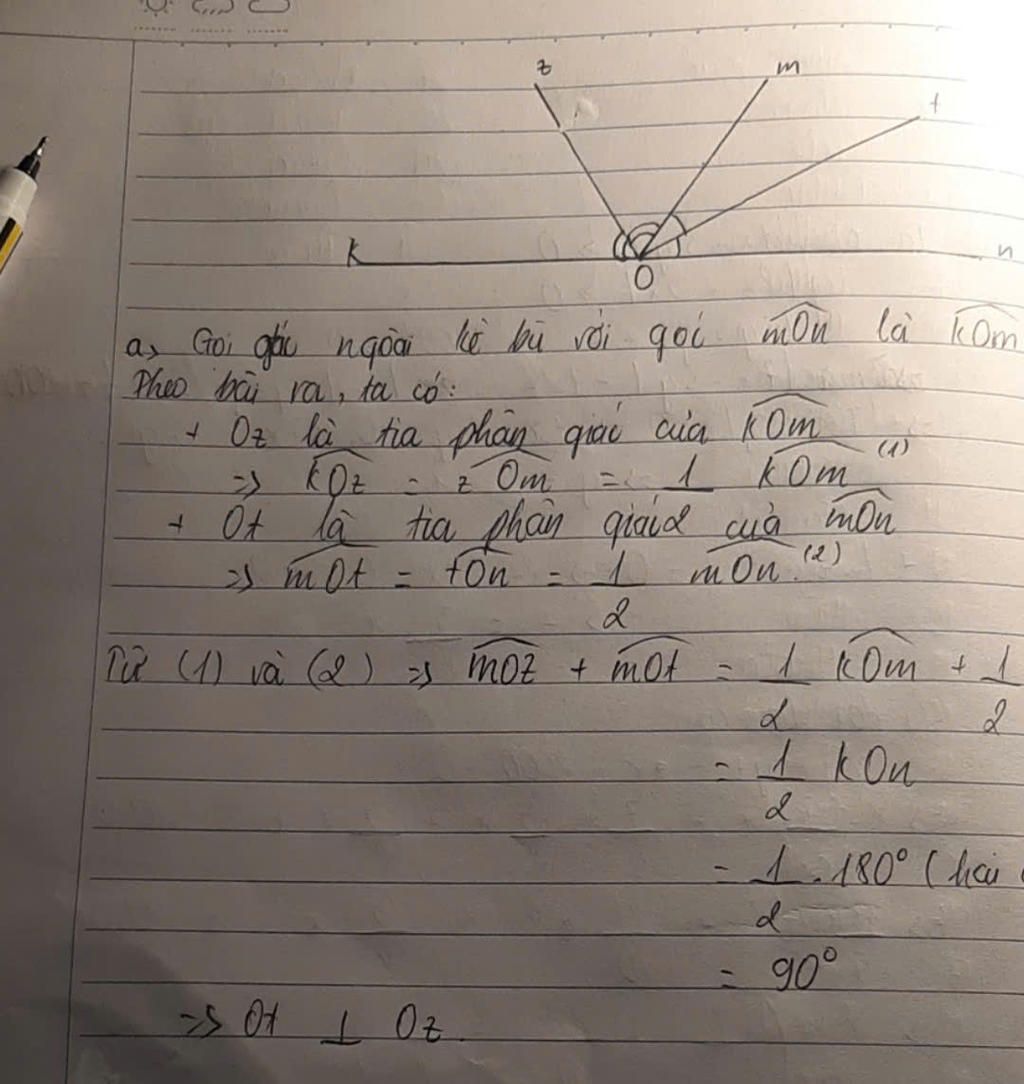 z
m
t
k
O
n
a, Gọi góc ngoài kề bù với gọi mOn là kOm
Theo bài ra, ta có:
+ Oz là tia phân giác của kOm
=> kOz = zOm = 1 kOm (1)
+ Ot là tia phân giác của mOn
=> mOt = tOn = 1/2 mOn. (2)
Từ (1) và (2) => mOz + mOt = 1/2 kOm + 1/2
= 1/2 kOn
= 1/2 . 180° (hai
= 90°
=> Ot ⊥ Oz.